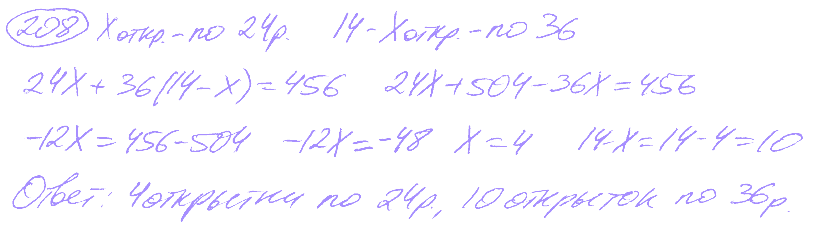 208 X откр. - по 24р. 14 - X откр. - по 36
24X + 36(14 - X) = 456 24X + 504 - 36X = 456
-12X = 456 - 504 -12X = -48 X = 4 14 - X = 14 - 4 = 10
Ответ: 4 открытки по 24р., 10 открыток по 36р.